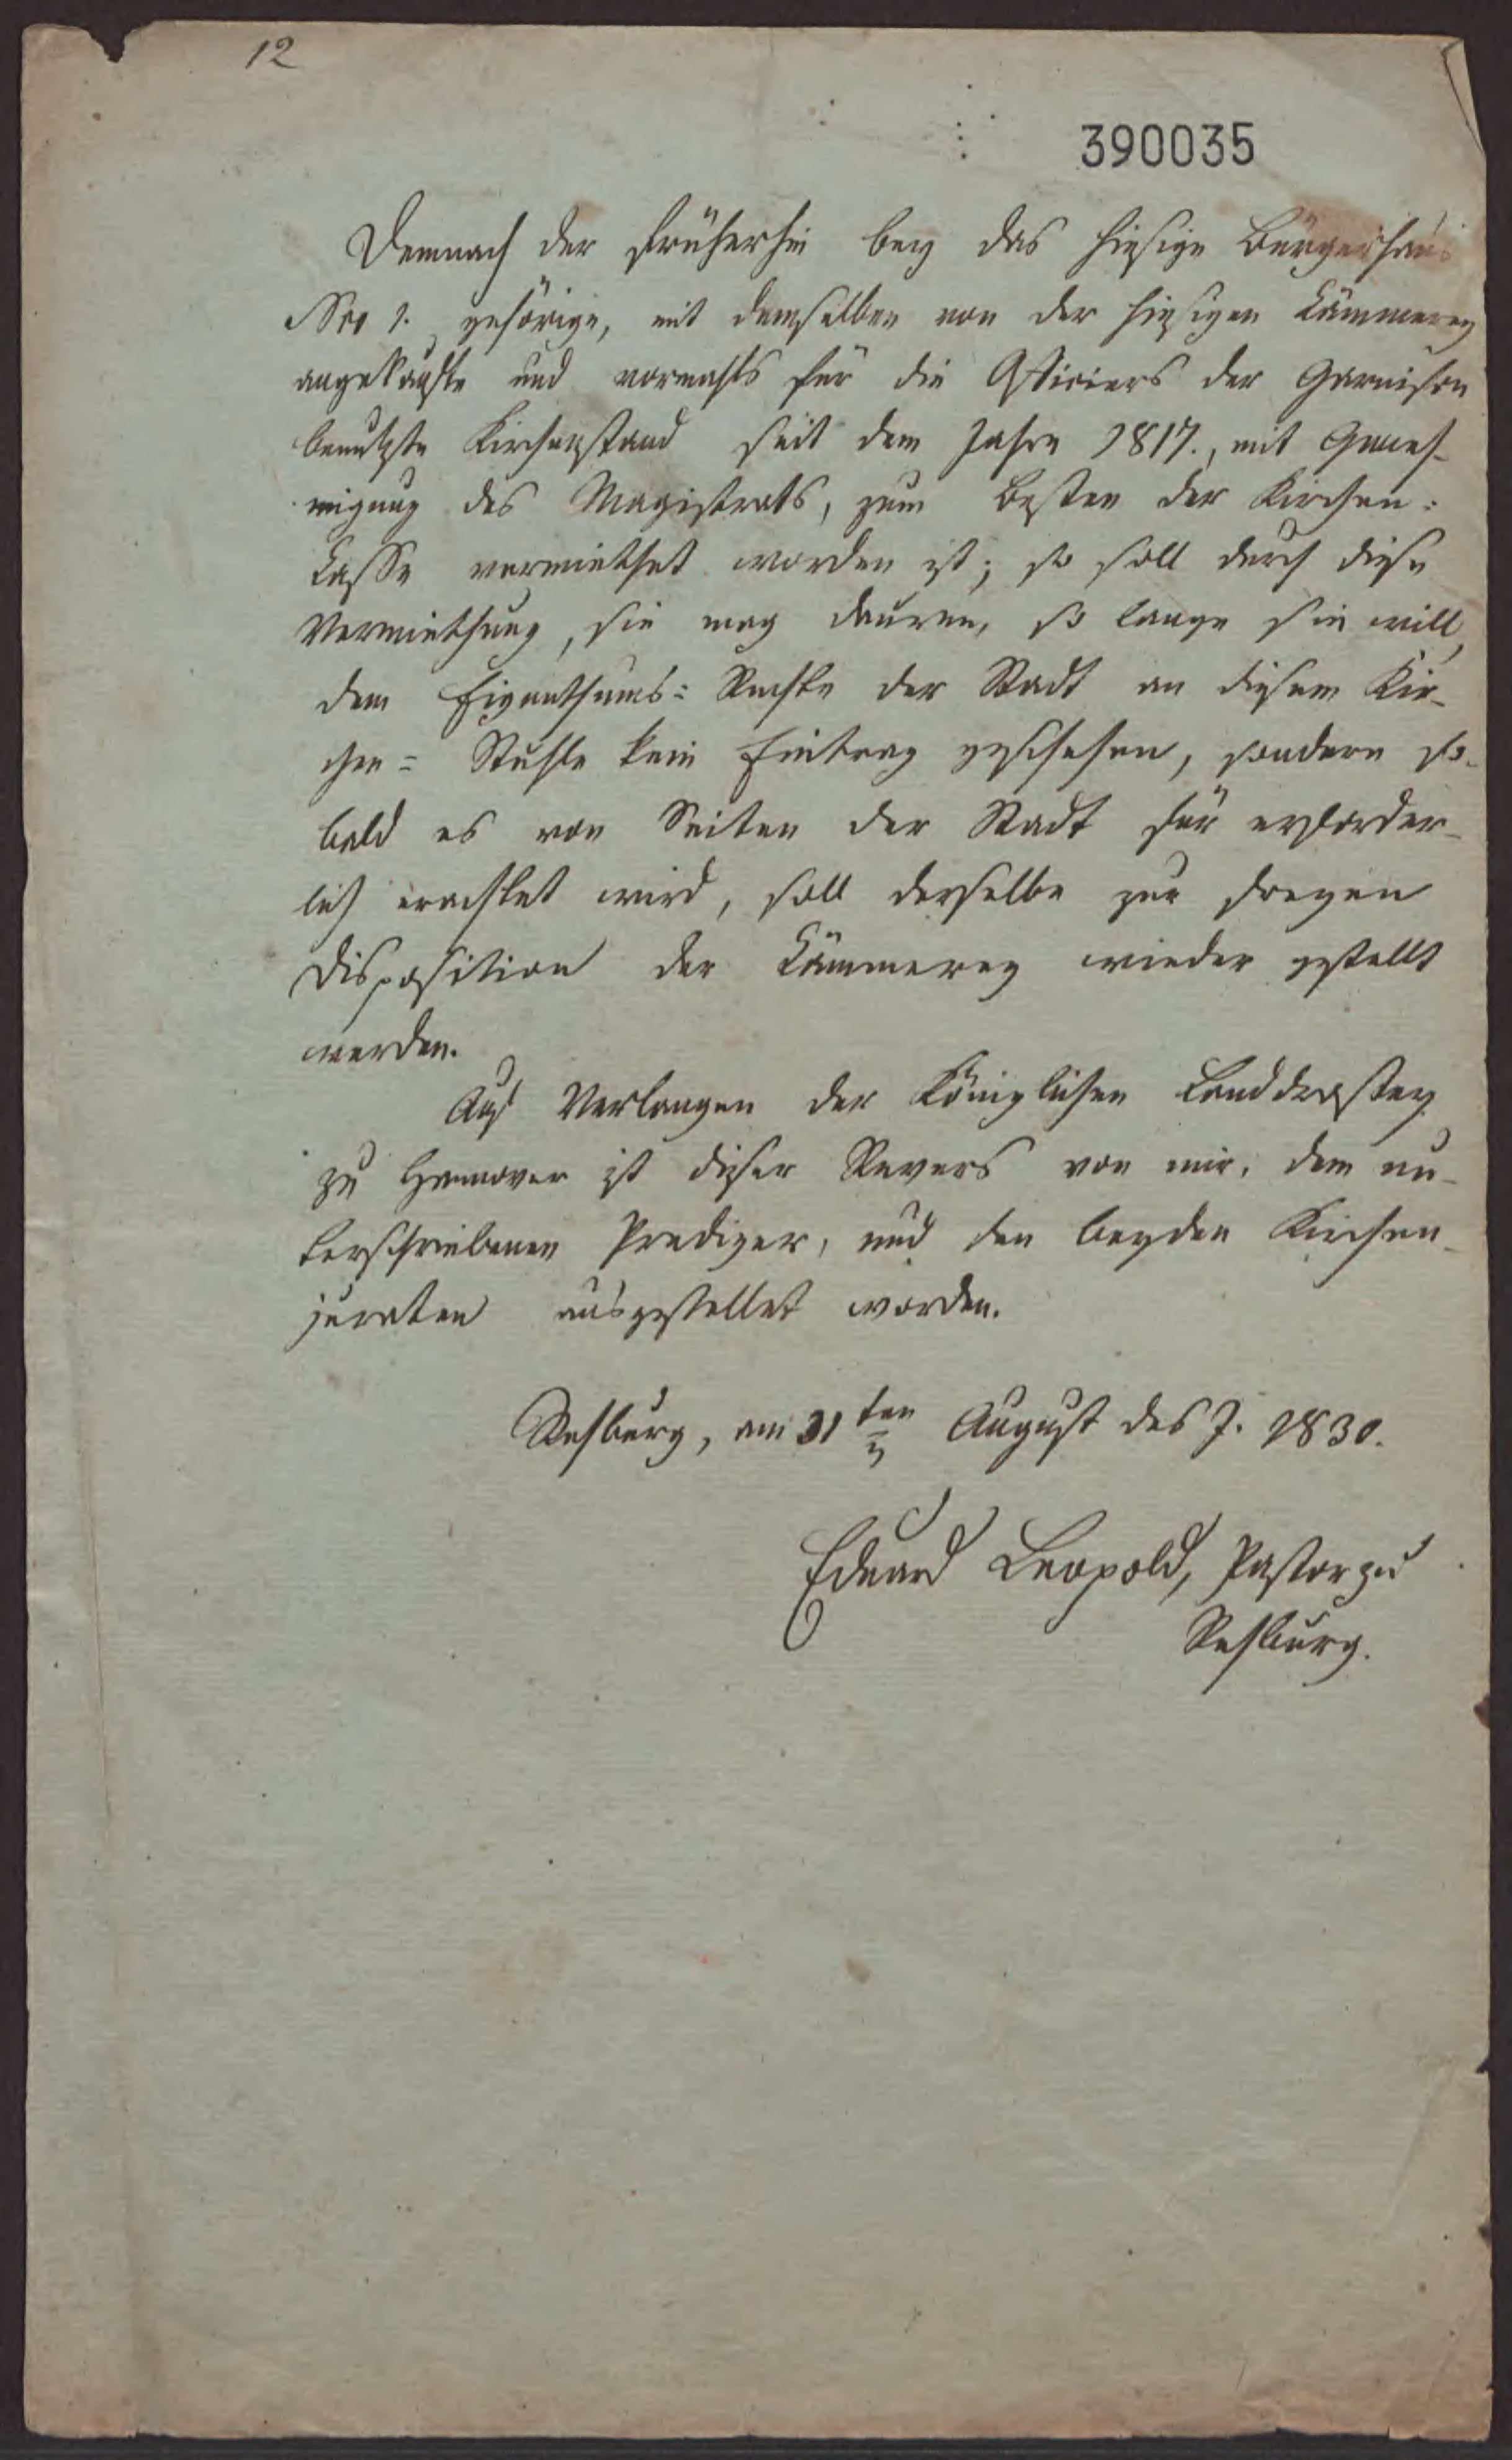 12
390035
Demnach der früherhin bey das hiesige Bürgerhaus
Nro 1. gehörige, mit demselben von der hiesigen Cämmerey
angekaufte und vormahls für die Officiers der Garnison
benutzte Kirchenstand seit dem Jahre 1817., mit Geneh-
migung des Magistrats, zum Besten der Kirchen-
Casse vermiethet worden ist; so soll durch diese
Vermiethung, sie mag dauren, so lange sie will,
dem Eigenthums= Rechte der Stadt an diesem Kir-
chen= Stuhle kein Eintrag geschehen, sondern so-
bald es von Seiten der Stadt für erforder-
lich erachtet wird, soll derselbe zur freyen
Disposition der Cämmerey wieder gestellt
werden.
Auf Verlangen der Königlichen Landdrostey
zu Hannover ist dieser Revers von mir, dem un-
terschriebenen Prediger, und den beyden Kirchen-
juraten ausgestellet worden.
Rehburg, am 31ten August des J. 1830.
Eduard Leopold, Pastor zu
Rehburg.